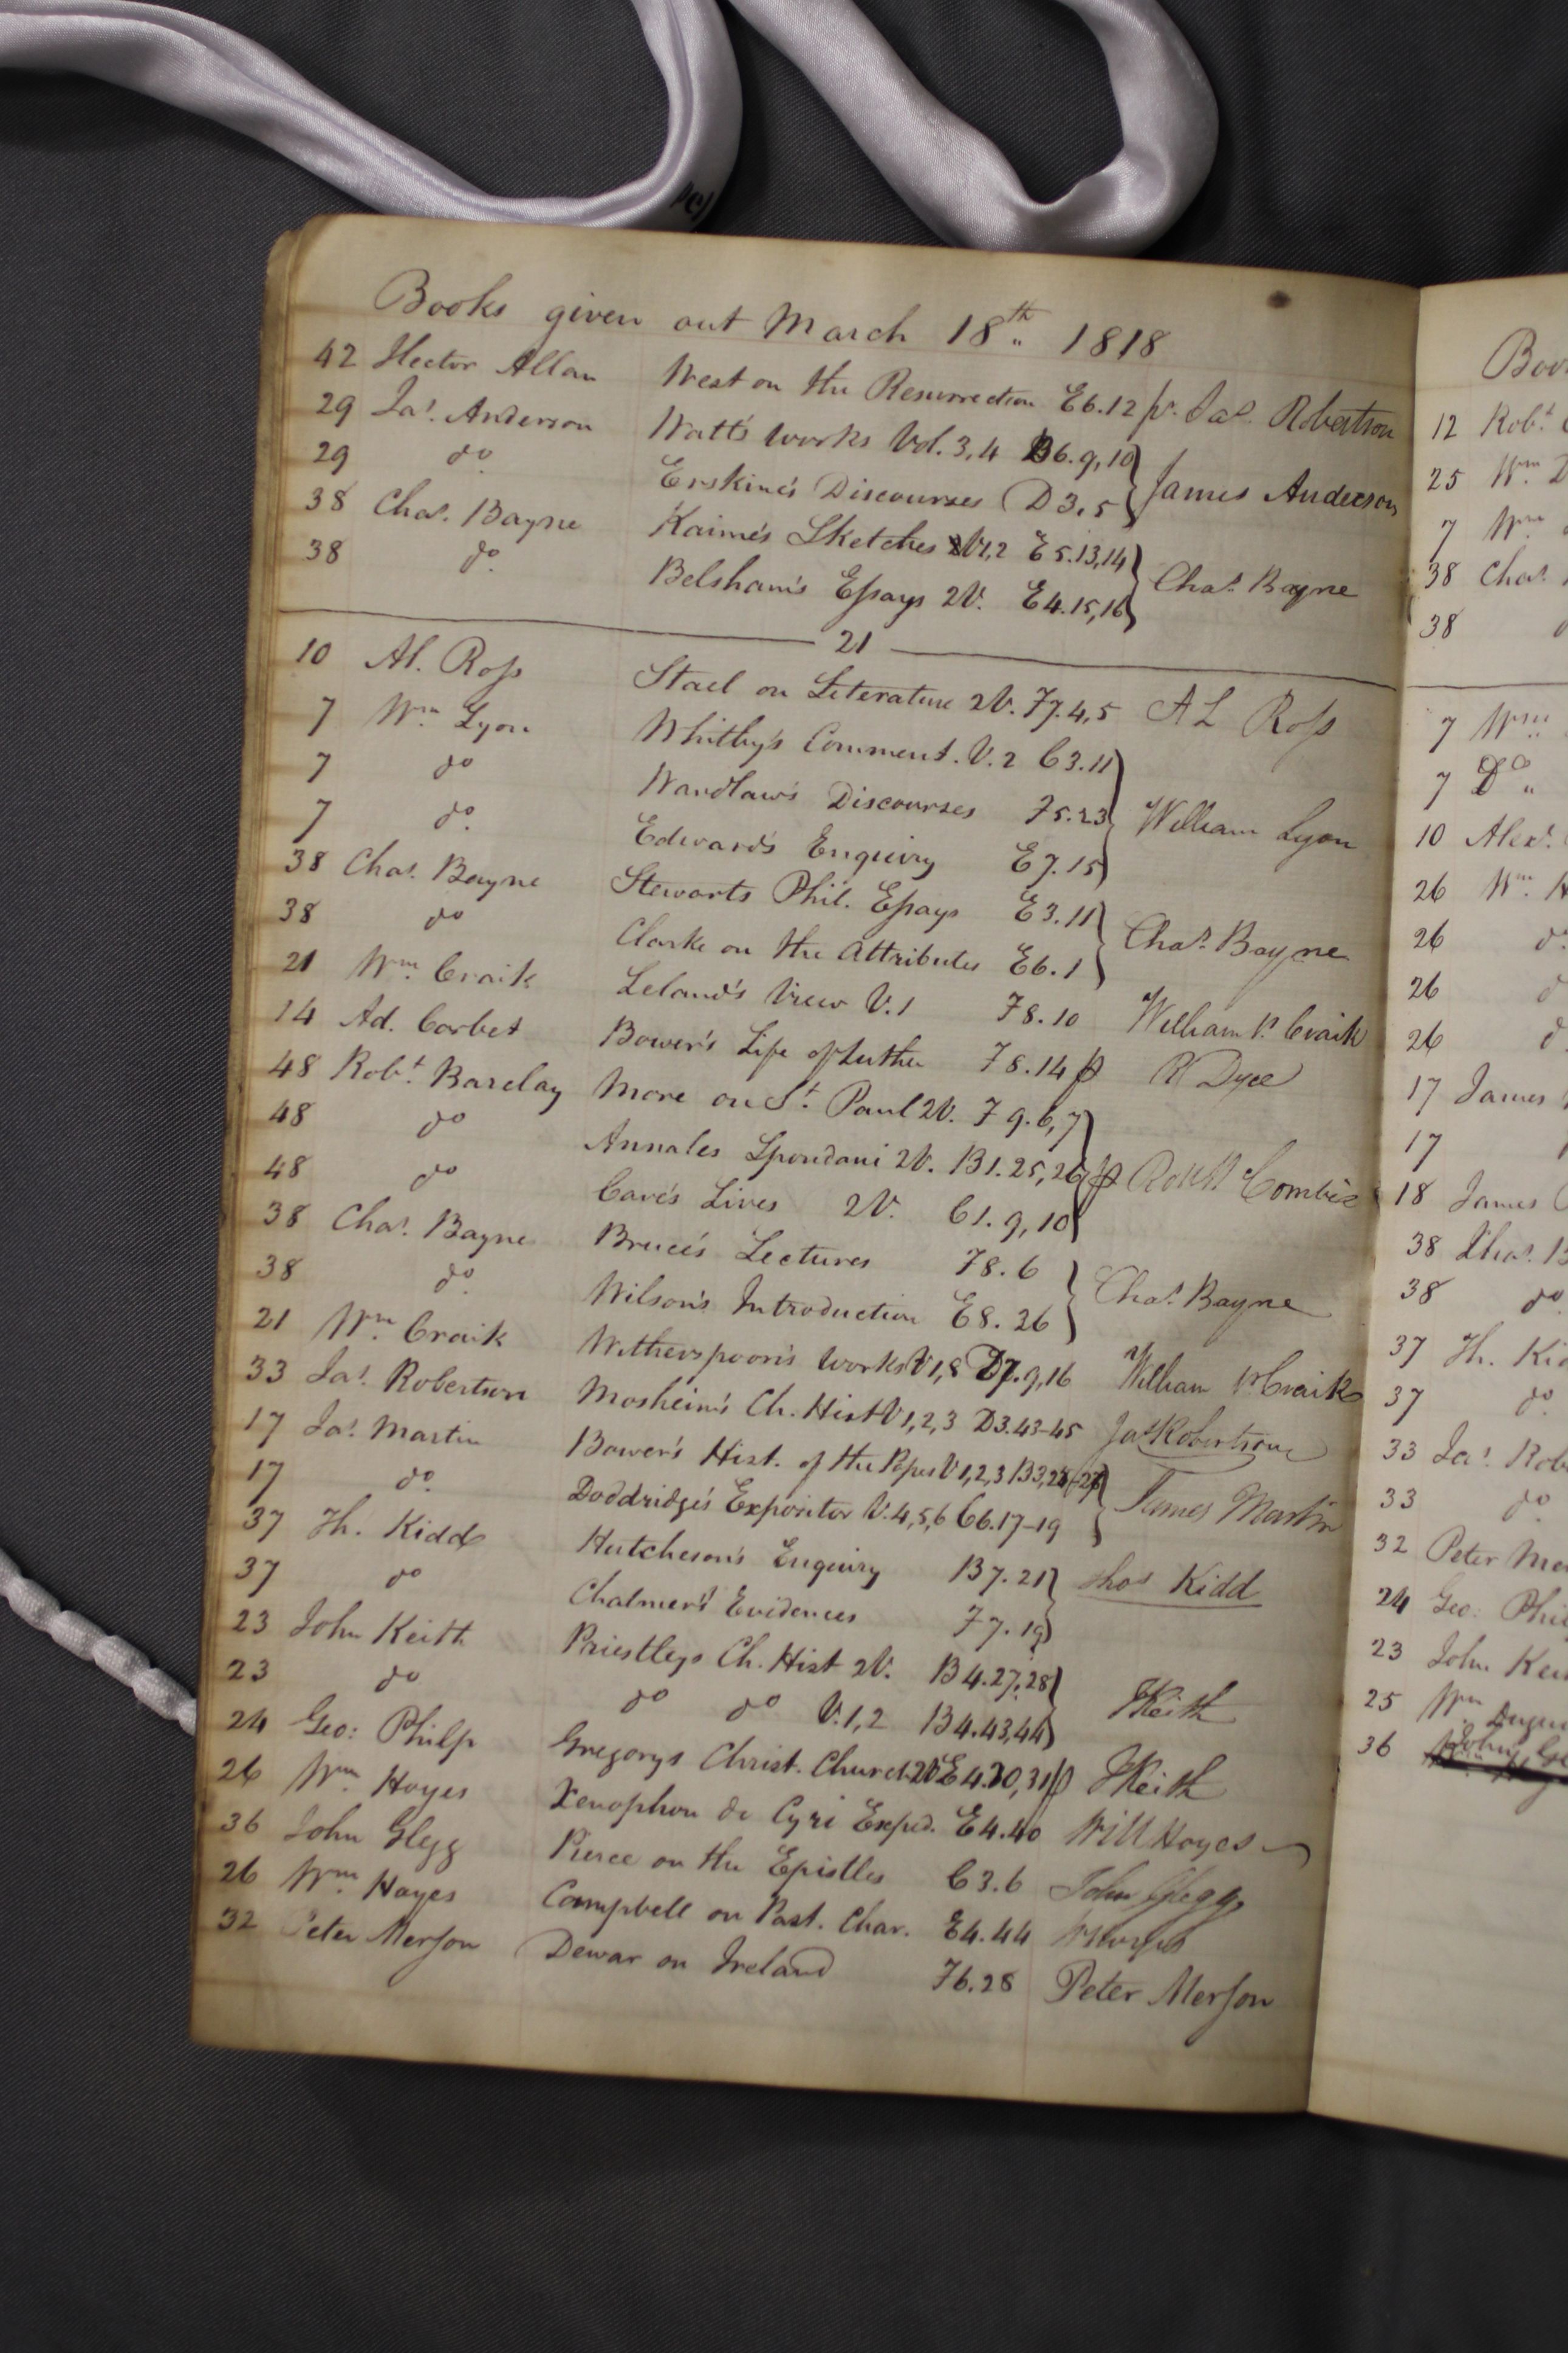 Books given out March 18th 1818
42 Hector Allan West on the Resurrection E6.12 pr. Jas. Robertson
29 Jas. Anderson Watt's Works Vol. 3,4 B6.9,10
29 do. Erskine's Discourses D3.5 James Anderson
38 Chas. Bayne Kaime's Sketches V1,2 E5.13,14
38 do. Belsham's Eſsays 2V. E4.15,16 Chas. Bayne
21
10 Al. Roſs Stael on Literature 2V. F7.4,5 A L Roſs
7 Wm. Lyon Whitby's Comment. V.2 C3.11
7 do Wardlaw's Discourses F5.23 William Lyon
7 do. Edward's Enquiry E7.15
38 Chas. Bayne Stewarts Phil. Eſsays E3.11
38 do Clarke on the Attributes E6.1 Chas. Bayne
21 Wm. Craik Leland's View V.1 F8.10 William P. Craik
14 Ad. Corbet Bower's Life of Luther F8.14 p R Dyce
48 Robt. Barclay More on St. Paul 2V. F9.6,7
48 do Annales Spondani 2V. B1.25,26 p Combie
48 do Cave's Lives 2V. C1.9,10
38 Chas. Bayne Bruce's Lectures F8.6
38 do. Wilson's Introduction E8.26 Chas. Bayne
21 Wm. Craik Witherspoon's Works V1,8 D7.9,16 William P. Craik
33 Jas. Robertson Mosheim's Ch. Hist V1,2,3 D3.43-45 Jas Robertson
17 Jas. Martin Bower's Hist. of the Popes V1,2,3 B3,
17 do. Doddridge's Expositor V.4,5,6 C6.17-19 James Martin
37 Th. Kidd Hutcheson's Enquiry B7.21 Thos Kidd
37 do Chalmer's Evidences F7.19
23 John Keith Priestleys Ch. Hist 2V. B4.27,28
23 do do do V.1,2 B4.43,44 JKeith
24 Geo: Philp Gregorys Christ. Church 2V E4.30,31 p JKeith
26 Wm. Hoyes Xenophon de Cyri Exped. E4.40 Will Hoyes
36 John Glegg Pierce on the Epistles C3.6 John Glegg
26 Wm. Hoyes Campbell on Past. Char. E4.44
32 Peter Merſon Dewar on Ireland F6.28 Peter Merſon
12 Robt
25 Wm. D
7 Wm
38 Chas.
38
7 Wm
7 Do
10 Alexr.
26 Wm. H
26 do.
26
26
17 James
17
18 James
38 Chas. B
38 do.
37 Th. Kid
37 do.
33 Jas. Rob
33 do.
32 Peter Me
24 Geo: Phil
23 John Kei
25 Wm
36 John Gl